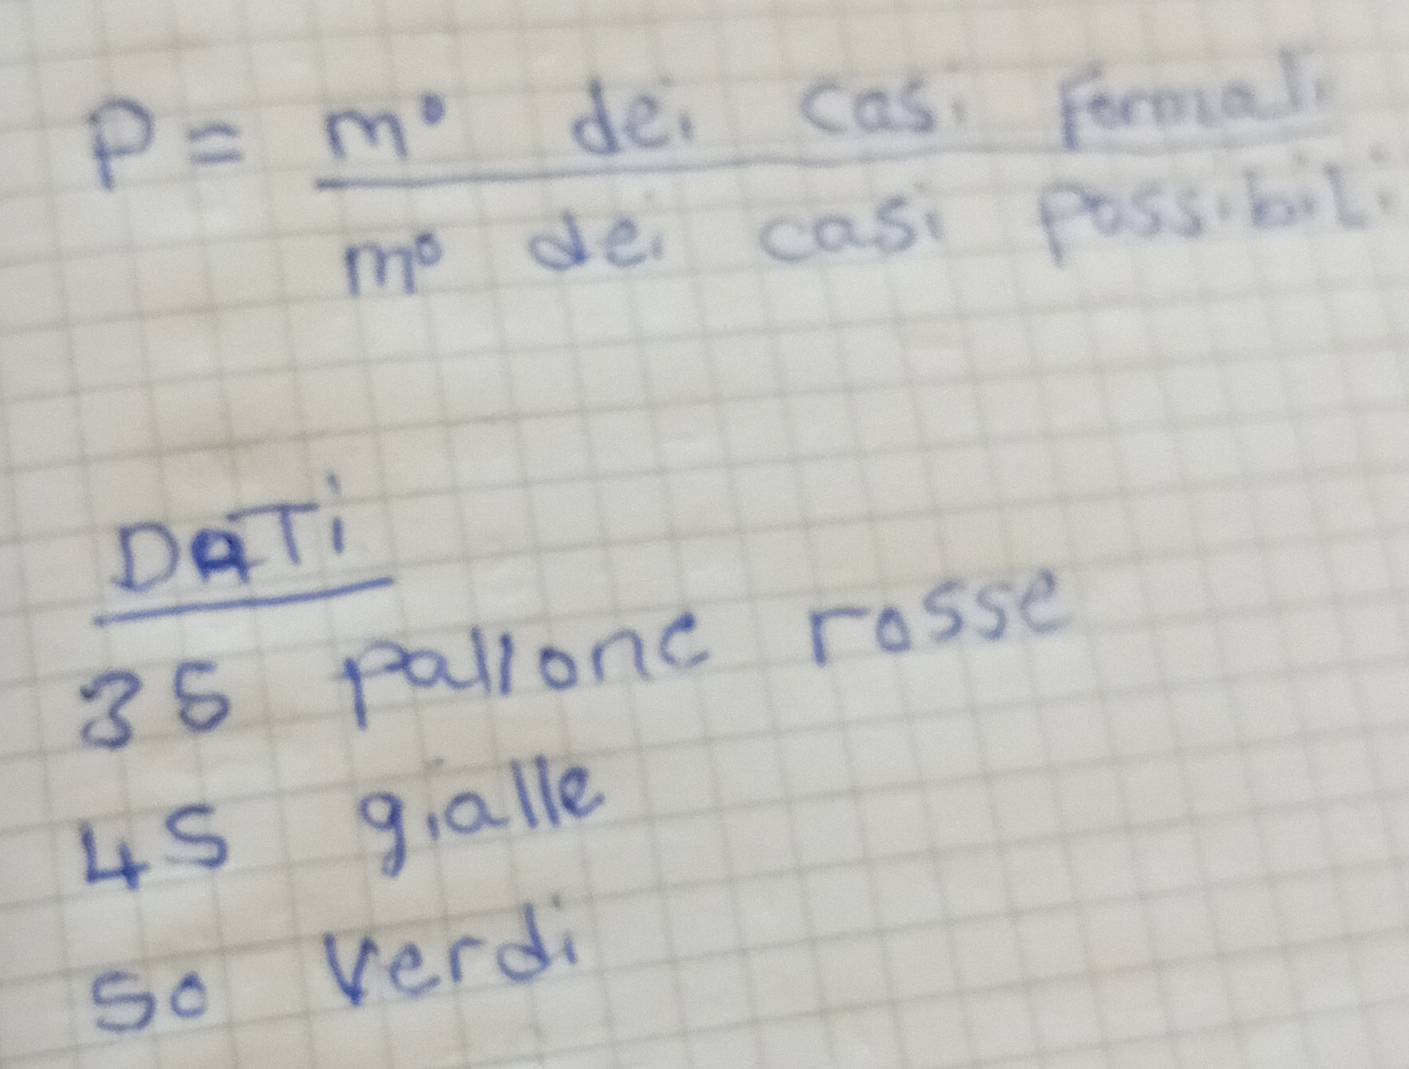 P = m° dei casi formali
m° dei casi possibili
DATi
35 pallone rosse
45 gialle
50 verdi